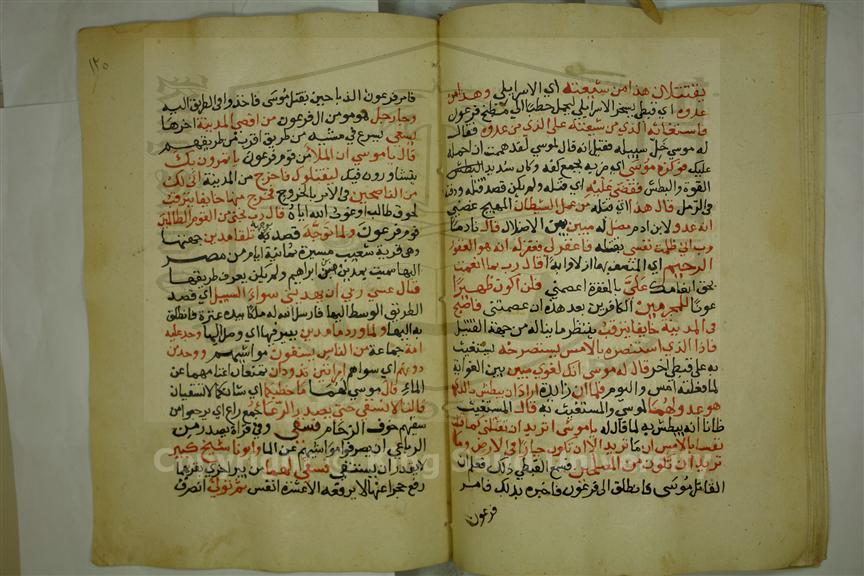 يقتتلان هذا من شيعته أي الاسرايلي وهذا من
عدوه اي قبطي يسخر الاسرايلي ليحمل حطبا الي مطبخ فرعون
فاستغاثه الذي من شيعته علي الذي من عدوه فقال
له موسي خل سبيله فقيل انه قال لموسي لقد هممت ان احمله
عليك فوكزه موسي اي ضربه بجمع كفه وكان شديد البطش
القوة والبطش فقضي عليه اي قتله ولم يكن قصد قتله ودفنه
في الرمل قال هذا اي قتله من عمل الشيطان المهيج غضبي
انه عدو لابن ادم مضل له مبين بين الاضلال قال نادما
رب اني ظلمت نفسي بقتله فاغفر لي فغفر له انه هو الغفور
الرحيم اي المتصف بهما ازلا وابدا قال رب بما انعمت
بحق انعامك علي بالمغفرة اعصمني فلن اكون ظهيرا
عونا للمجرمين الكافرين بعد هذه ان عصمتني فاصبح
في المدينة خايفا يترقب ينتظر ما يناله من جهة القتيل
فاذا الذي استنصره بالامس يستصرخه يستغيث
به علي قبطي اخر قال له موسي انك لغوي مبين بين الغواية
لما فعلته امس واليوم فلما ان زايدة اراد ان يبطش بالذي
هو عدو لهما لموسي والمستغيث به قال المستغيث
ظانا انه يبطش به لما قال له يا موسي اتريد ان تقتلني كما قتلت
نفسا بالامس ان ما تريد الا ان تكون جبارا في الارض وما
تريد ان تكون من المصلحين فسمع القبطي ذلك فعلم ان
القاتل موسي فانطلق الي فرعون فاخبره بذلك فامر
فرعون
١٢٥
فامر فرعون الذباحين بقتل موسي فاخذوا في الطريق اليه
وجا رجل هو مومن ال فرعون من اقصي المدينة اخرها
يسعي يسرع في مشيه من طريق اقرب من طريقهم
قال يا موسي ان الملا من قوم فرعون ياتمرون بك
يتشاورون فيك ليقتلوك فاخرج من المدينة اني لك
من الناصحين في الامر بالخروج فخرج منها خايفا يترقب
لحوق طالب او غوث الله اياه قال رب نجني من القوم الظالمين
قوم فرعون ولما توجه قصد بوجهه تلقا مدين جهتها
وهي قرية شعيب مسيرة ثمانية ايام من مصر
سميت بمدين بن ابراهيم ولم يكن يعرف طريقها
قال عسي ربي ان يهديني سواء السبيل اي قصد
الطريق الوسط اليها فارسل الله له ملكا بيده عنزة فانطلق
به اليها ولما ورد ما مدين بير فيها اي وصل اليها وجد عليه
امة جماعة من الناس يسقون مواشيهم ووجد من
دونهم اي سواهم امراتين تذودان تمنعان اغنامهما عن
الماء قال موسي لهما ما خطبكما اي شانكما لا تسقيان
قالتا لا نسقي حتي يصدر الرعا جمع راع اي يرجعوا من
سقيهم خوف الزحام فنسقي وفي قراة يصدر من
الرباعي اي يصرفوا مواشيهم عن الما وابونا شيخ كبير
لا يقدر ان يستقي فسقي لهما من بير اخري بقربها
رفع حجرا عنها لا يرفعه الا عشرة انفس ثم تولي انصرف